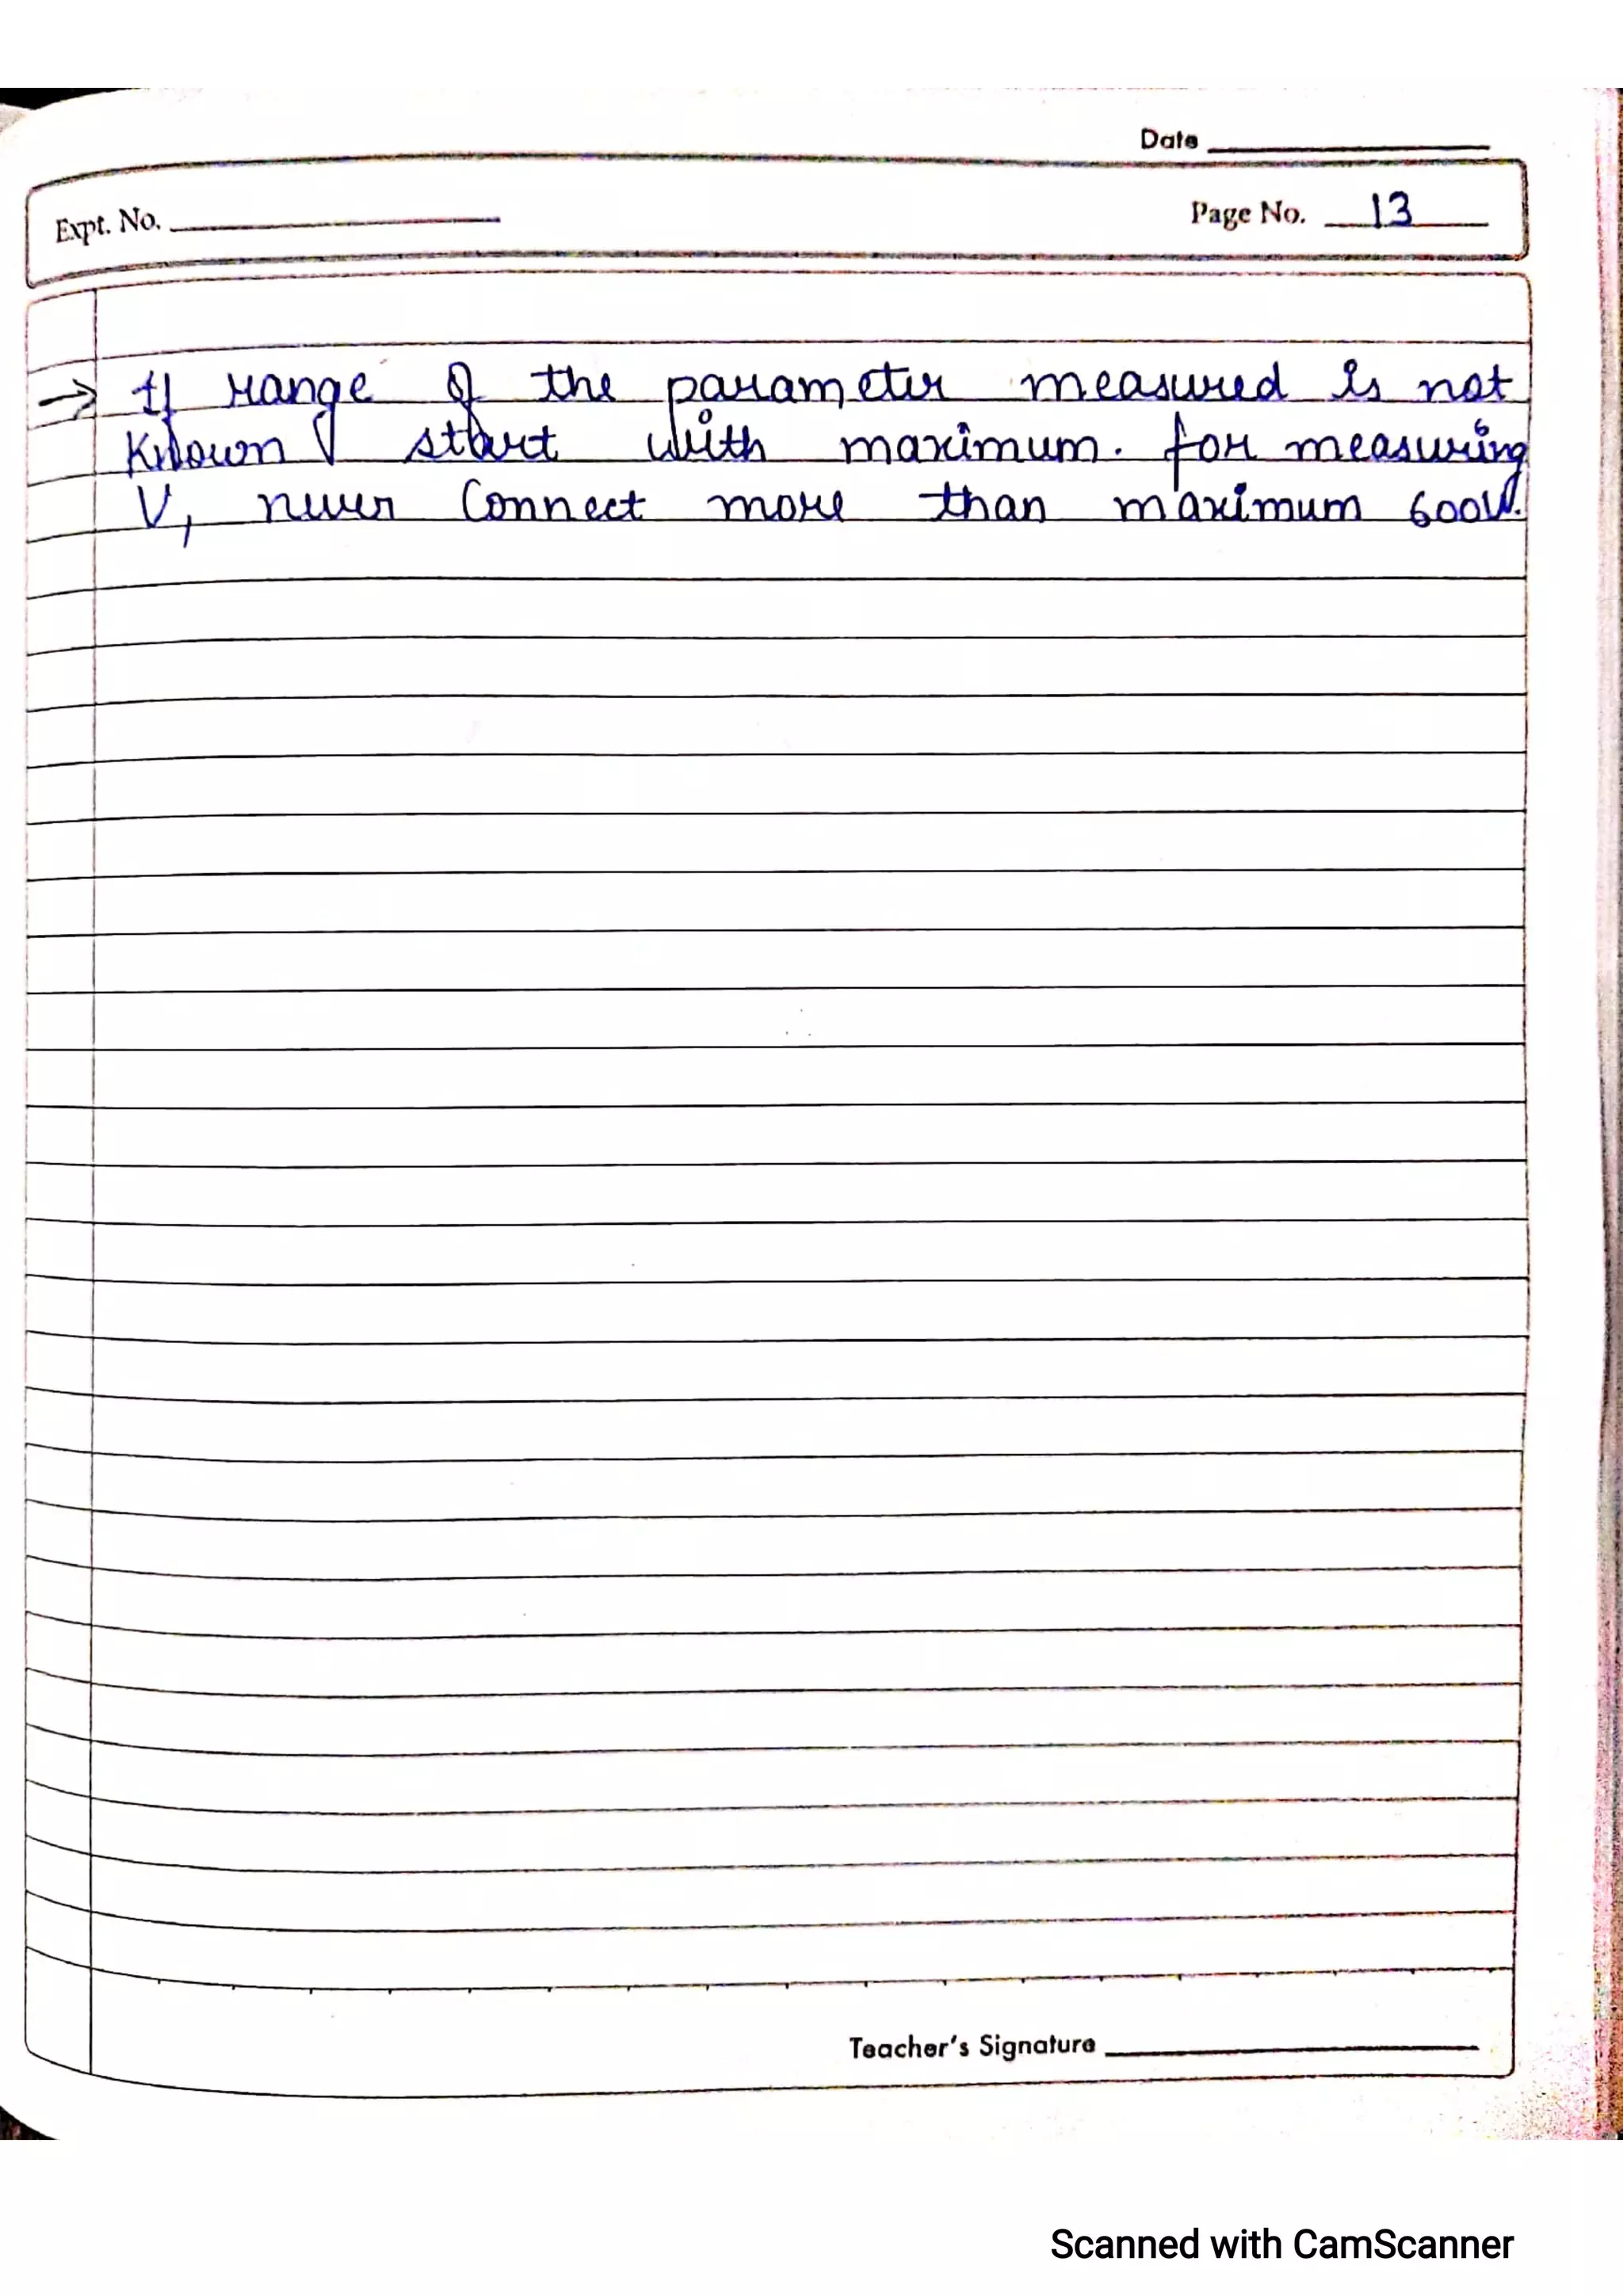 Date
Expt. No.
Page No. 13
→ If range of the parameter measured is not
known start with maximum. for measuring
V, never Connect more than maximum 600V.
Teacher's Signature
Scanned with CamScanner